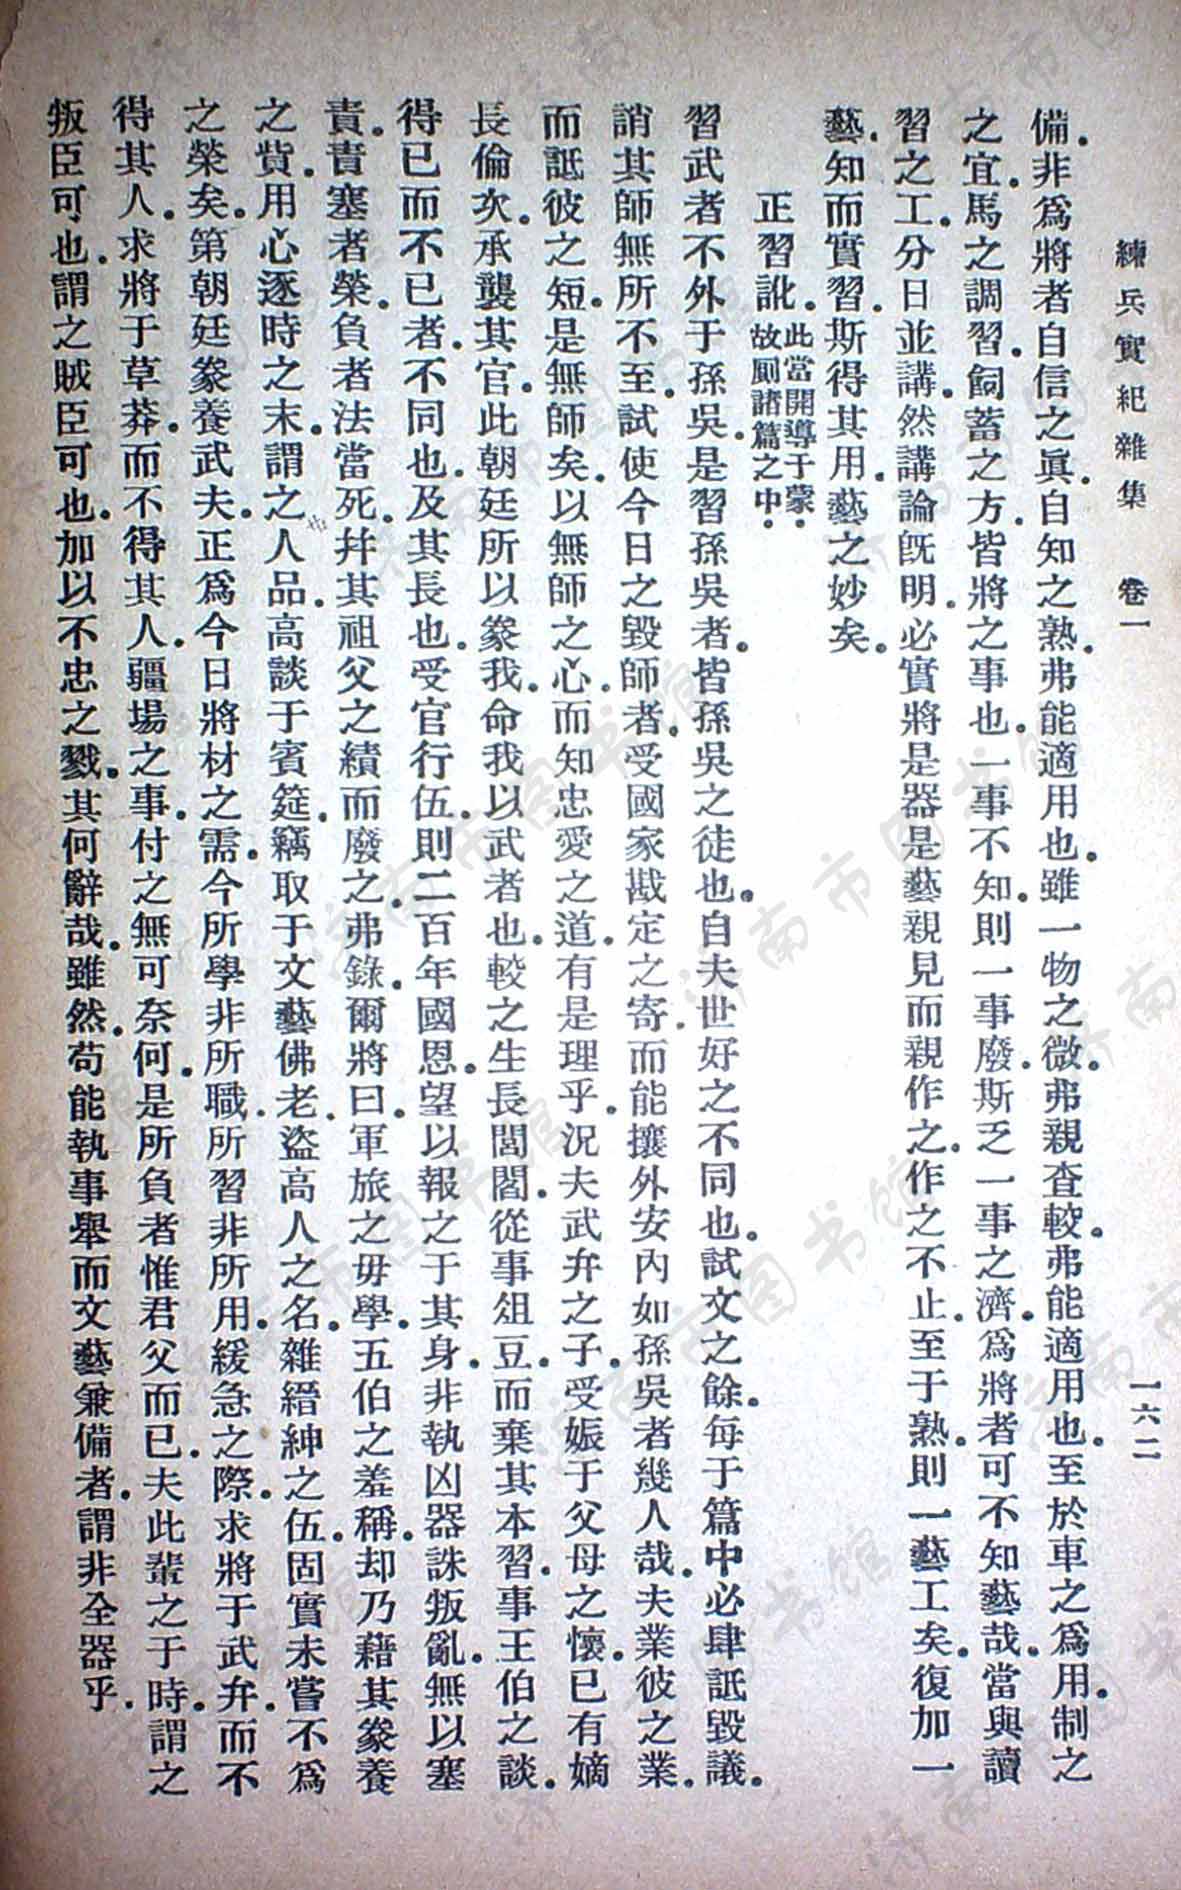 練兵實紀雜集　卷一　一六二
備。非爲將者自信之眞。自知之熟。弗能適用也。雖一物之微。弗親查較。弗能適用也。至於車之爲用。制之
之宜。馬之調習。飼蓄之方。皆將之事也。一事不知。則一事廢。斯乏一事之濟。爲將者可不知藝哉。當與讀
習之工。分日並講。然講論旣明。必實將是器是藝親見而親作之。作之不止。至于熟。則一藝工矣。復加一
藝。知而實習。斯得其用。藝之妙矣。
正習訛。此當開導于蒙。
故厠諸篇之中。
習武者不外于孫吳。是習孫吳者。皆孫吳之徒也。自夫世好之不同也。試文之餘。每于篇中必肆詆毀議。
誚其師無所不至。試使今日之毀師者。受國家戡定之寄。而能攘外安內如孫吳者幾人哉。夫業彼之業。
而詆彼之短。是無師矣。以無師之心。而知忠愛之道。有是理乎。況夫武弁之子。受娠于父母之懷。已有嫡
長倫次。承襲其官。此朝廷所以豢我。命我以武者也。較之生長閭閻。從事俎豆。而棄其本習。事王伯之談。
得已而不已者。不同也。及其長也。受官行伍。則二百年國恩。望以報之于其身。非執凶器誅叛亂。無以塞
責。責塞者榮。負者法當死。幷其祖父之績而廢之。弗錄。爾將曰。軍旅之毋學。五伯之羞稱。却乃藉其豢養
之貲。用心逐時之末。謂之人品。高談于賓筵。竊取于文藝佛老。盜高人之名。雜縉紳之伍。固實未嘗不爲
之榮矣。第朝廷豢養武夫。正爲今日將材之需。今所學非所職。所習非所用。緩急之際。求將于武弁。而不
得其人。求將于草莽。而不得其人。疆場之事。付之無可奈何。是所負者惟君父而已。夫此輩之于時。謂之
叛臣可也。謂之賊臣可也。加以不忠之戮。其何辭哉。雖然。苟能執事舉而文藝兼備者。謂非全器乎。
济南市图书馆